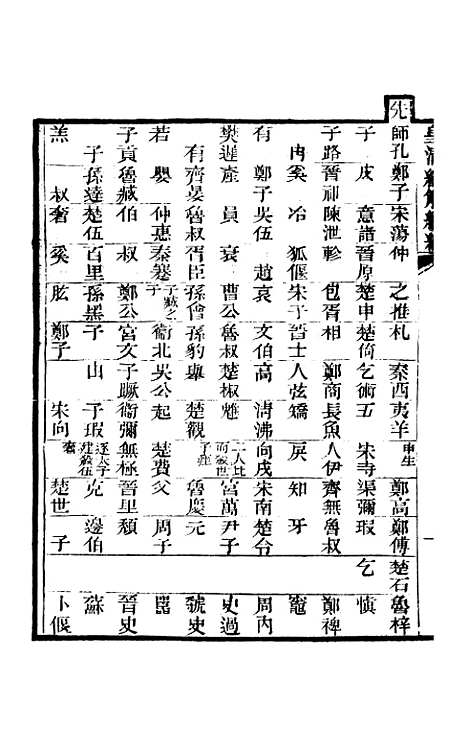 皇清經解續編
一
先師孔 鄭子 宋蕩 仲 之推 札 秦西 夷羊 東生 鄭高 鄭傅 楚石 魯梓
子 皮 意諸 晉原 楚申 楚倚 乞術 五 宋寺 渠彌 瑕 乞 慎
子路 晉祁 陳泄 軫 包胥 相 鄭商 長魚 人伊 齊無 魯叔 鄭裨
冉 奚 冶 狐偃 宋子 晉士 人弦 矯 戾 知 牙 竈
有 鄭子 吳伍 趙衰 文伯 高 清沸 向戌 宋南 楚令 周內
樊遲 產 員 衰 曹公 魯叔 楚椒 魋 二人比而殺世子痤 宮萬 尹子 史過
有 齊晏 魯叔 胥臣 孫會 孫豹 舉 楚觀 魯慶 元 虢史
若 嬰 仲惠 秦蹇 子臧之子 衛北 吳公 起 楚費 父 周子 嚚
子貢 魯臧 伯 叔 鄭公 宮文 子蹶 衛彌 無極 晉里 頹 晉史
子 孫達 楚伍 百里 孫黑 子 山 子瑕 逐太子建殺伍奢 克 邊伯 蘇
羔 叔 奢 奚 肱 鄭子 宋向 楚世 子 卜偃